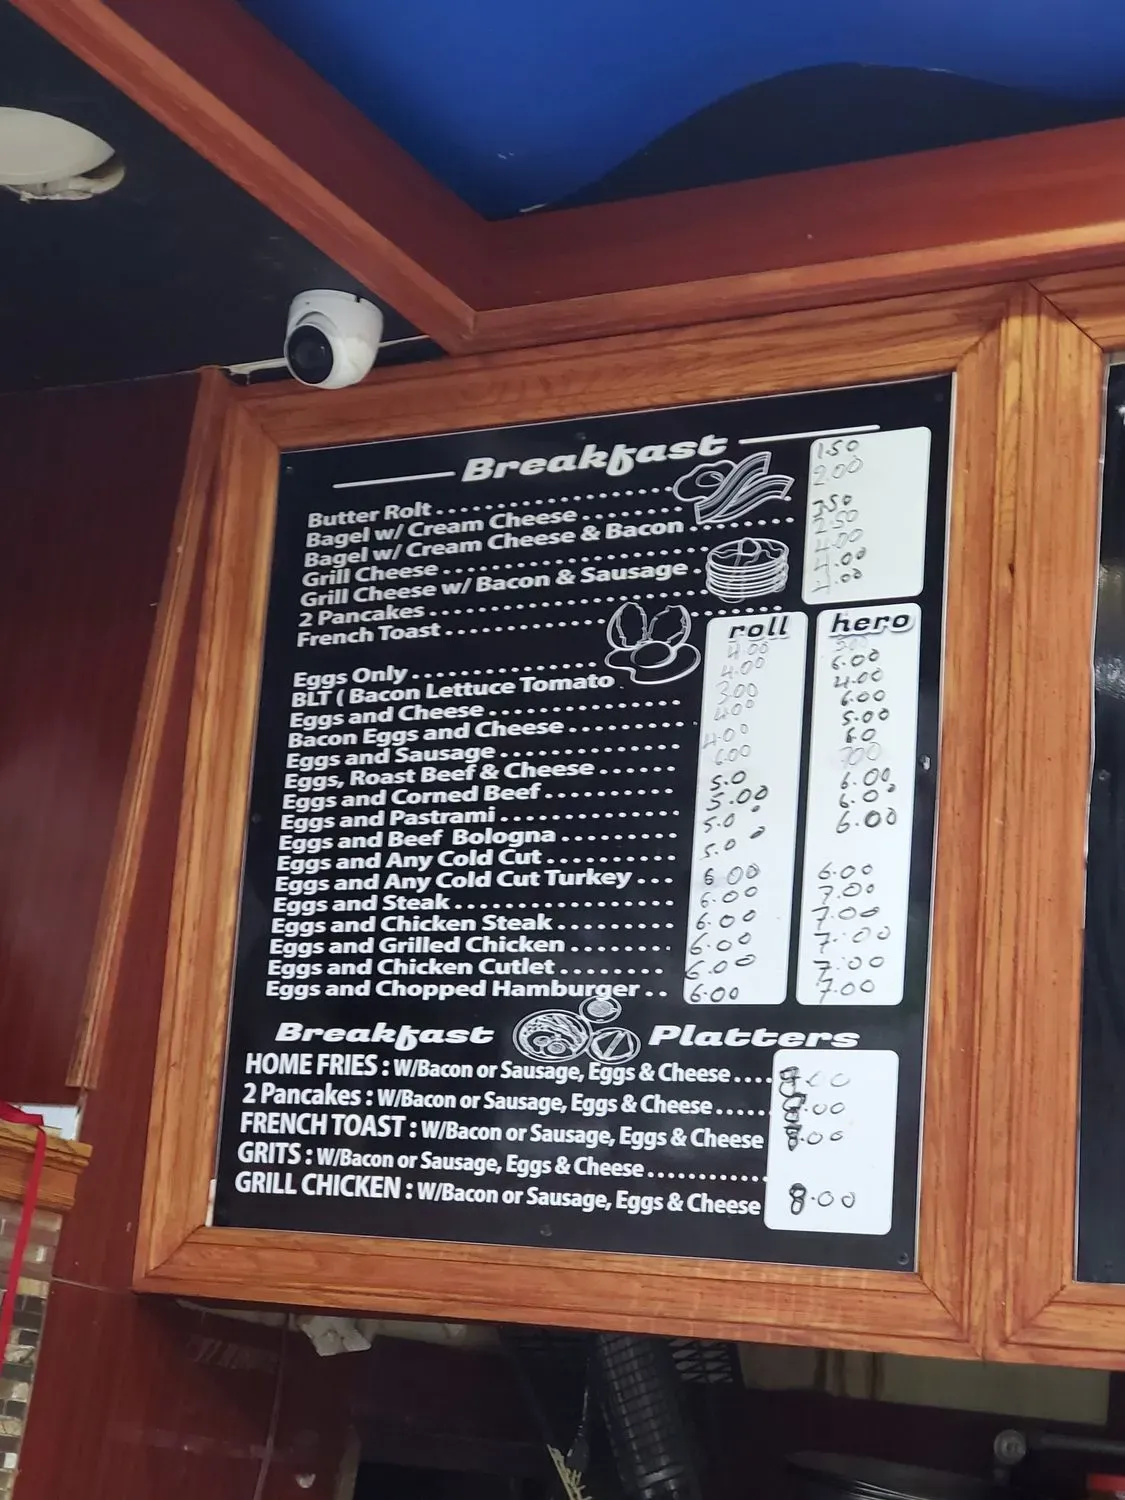 Breakfast
Butter Rolt
Bagel w/ Cream Cheese
Bagel w/ Cream Cheese & Bacon
Grill Cheese
Grill Cheese w/ Bacon & Sausage
2 Pancakes
French Toast
1.50
2.00
3.50
2.50
4.00
4.00
4.00
roll hero
Eggs Only
BLT ( Bacon Lettuce Tomato
Eggs and Cheese
Bacon Eggs and Cheese
Eggs and Sausage
Eggs, Roast Beef & Cheese
Eggs and Corned Beef
Eggs and Pastrami
Eggs and Beef Bologna
Eggs and Any Cold Cut
Eggs and Any Cold Cut Turkey
Eggs and Steak
Eggs and Chicken Steak
Eggs and Grilled Chicken
Eggs and Chicken Cutlet
Eggs and Chopped Hamburger
4.00
4.00
3.00
4.00
4.00
6.00
5.0
5.00
5.0
5.0
6.00
6.00
6.00
6.00
6.00
6.00
6.00
4.00
6.00
5.00
6.0
6.00
6.00
6.00
6.00
7.00
7.00
7.00
7.00
7.00
Breakfast Platters
HOME FRIES : W/Bacon or Sausage, Eggs & Cheese
2 Pancakes : W/Bacon or Sausage, Eggs & Cheese
FRENCH TOAST : W/Bacon or Sausage, Eggs & Cheese 8.00
GRITS : W/Bacon or Sausage, Eggs & Cheese
GRILL CHICKEN : W/Bacon or Sausage, Eggs & Cheese 8.00